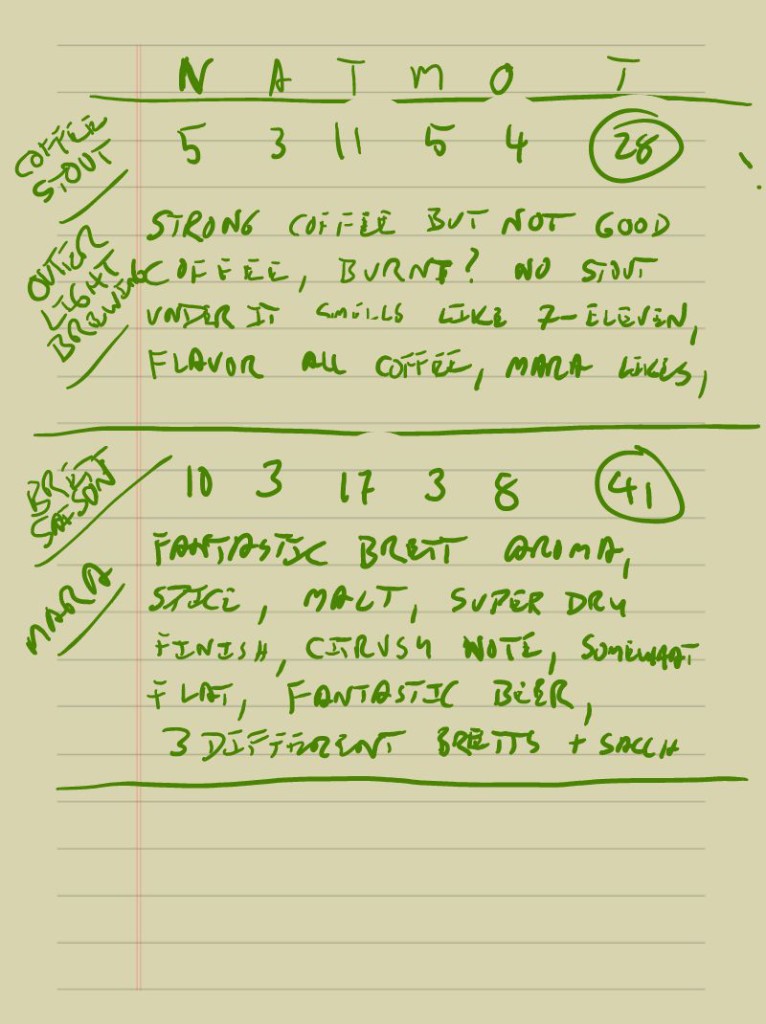 N A T M O T
COFFEE
STOUT
5 3 11 5 4 28
OUTER
LIGHT
BREWING
STRONG COFFEE BUT NOT GOOD
COFFEE, BURNT? NO STOUT
UNDER IT SMELLS LIKE 7-ELEVEN,
FLAVOR ALL COFFEE, MARA LIKES,
BRET
SAISON
10 3 17 3 8 41
MARA
FANTASTIC BRETT AROMA,
SPICE, MALT, SUPER DRY
FINISH, CITRUSY NOTE, SOMEWHAT
FLAT, FANTASTIC BEER,
3 DIFFERENT BRETTS + SACCH